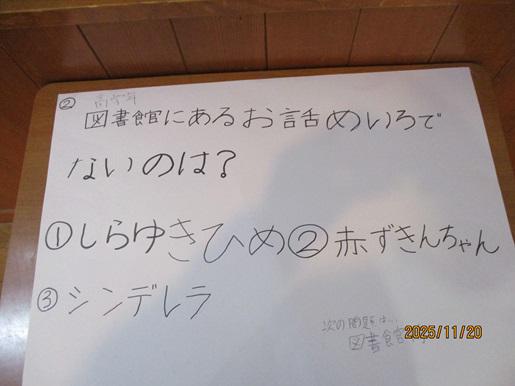 ② 高学年
図書館にあるお話めいろで
ないのは?
①しらゆきひめ②赤ずきんちゃん
③シンデレラ
次の問題は...
図書館
2025/11/20